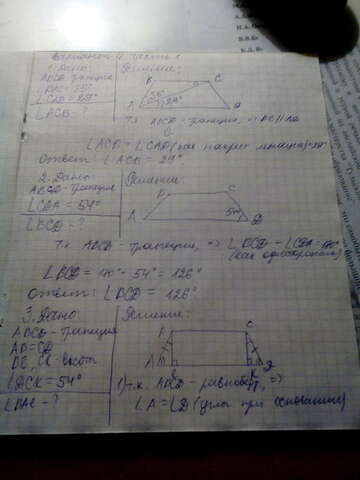 Вариант 4 Часть 1
1. Дано: Решение:
ABCD-трапеция
∠BAC = 35°
∠CAD = 29°
∠ACB - ?
B C
35°
29°
A D
Т.к ABCD - трапеция, => BC || AD
∠ACB = ∠CAD (как накрест лежащие) = 29°
Ответ: ∠ACB = 29°
2. Дано: Решение:
ABCD-трапеция
∠CDA = 54°
∠BCD - ?
B C
54°
A D
Т.к. ABCD - трапеции, => ∠BCD + ∠CDA = 180°
(как односторонн)
∠BCD = 180° - 54° = 126°
Ответ: ∠BCD = 126°
3. Дано: Решение:
ABCD-трапеция
AB=CD
BE, CK-высот
∠DCK = 54°
∠BAE - ?
B C
A E K D
1) т.к. ABCD - равнобедр, =>
∠A = ∠D (углы при основании)